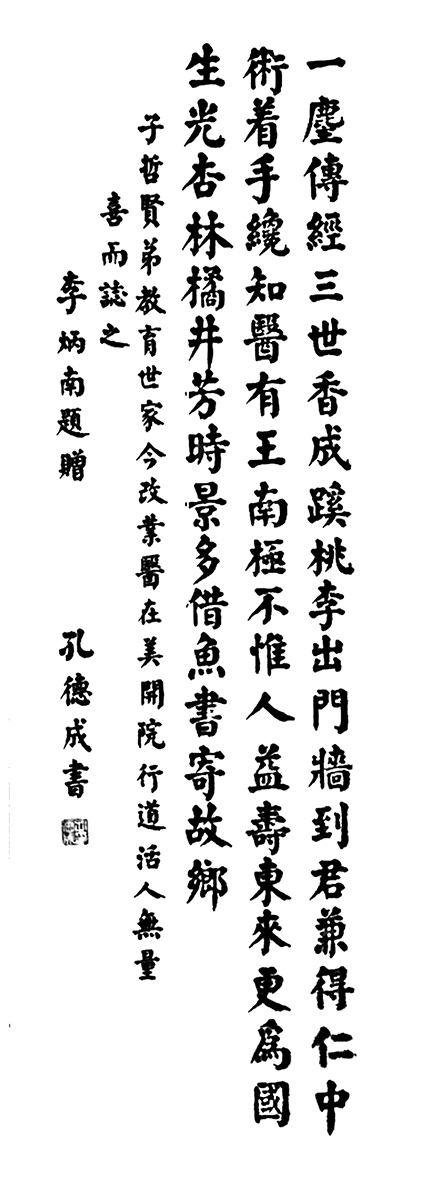 一麈傳經三世香成蹊桃李出門牆到君兼得仁中
術着手纔知醫有王南極不惟人益壽東來更為國
生光杏林橘井芳時景多借魚書寄故鄉
子哲賢弟教育世家今改業醫在美開院行道活人無量
喜而誌之
李炳南題贈
孔德成書